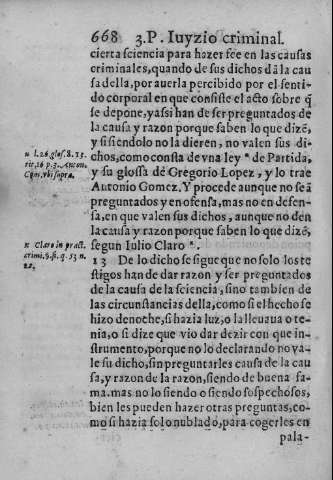 668 3.P. Iuyzio criminal.
cierta sciencia para hazer fee en las causas
criminales, quando de sus dichos dā la cau
sa della, por auerla percibido por el senti-
do corporal en que consiste el acto sobre q̃
se depone, y assi han de ser preguntados de
la causa y razon porque saben lo que dizē,
y si siendolo no la dieren, no valen sus di-
u l. 26. glos. 8. 13.
tit. 16. p. 3. Anton.
Gom. vbi supra.
chos, como consta de vna ley u de Partida,
y su glossa de Gregorio Lopez, y lo trae
Antonio Gomez. Y procede aunque no seā
preguntados y en ofensa, mas no en defen-
sa, en que valen sus dichos, aunque no den
la causa y razon porque saben lo que dizē,
x Claro in pract.
crimi. §. fi. q. 53 n.
22.
segun Iulio Claro x.
13 De lo dicho se sigue que no solo los te
stigos han de dar razon y ser preguntados
de la causa de la sciencia, sino tambien de
las circunstancias della, como si el hecho se
hizo de noche, si hazia luz, o la lleuaua o te-
nia, o si dize que vio dar dezir con que in-
strumento, porque no lo declarando no va-
le su dicho, sin preguntarles causa de la cau
sa, y razon de la razon, siendo de buena fa-
ma. mas no lo siendo o siendo sospechosos,
bien les pueden hazer otras preguntas, co-
mo si hazia sol o nublado, para cogerles en
pala-